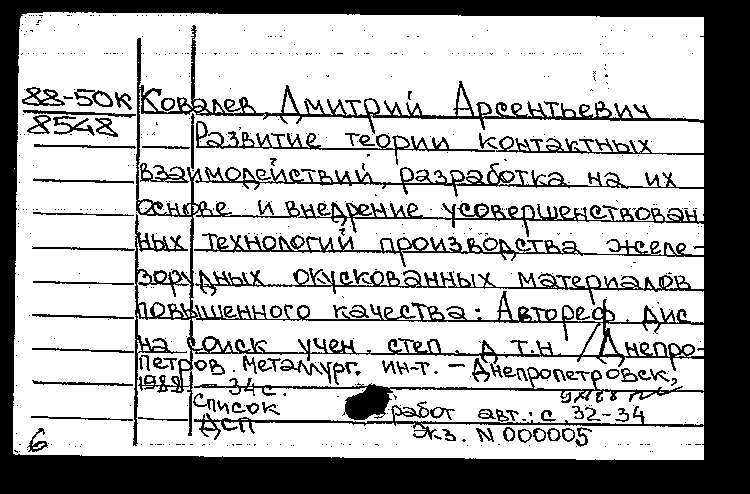 88-50к Ковалев, Дмитрий Арсентьевич
8548
Развитие теории контактных
взаимодействий, разработка на их
основе и внедрение усовершенствован
ных технологий производства желе-
зорудных окускованных материалов
повышенного качества: Автореф. дис
на соиск учен. степ. д.т.н. / Днепро-
петров. металлург. ин-т. – Днепропетровск,
1988 – 34с.
Список работ авт.: с. 32-34
ДСП Экз. N 000005
6